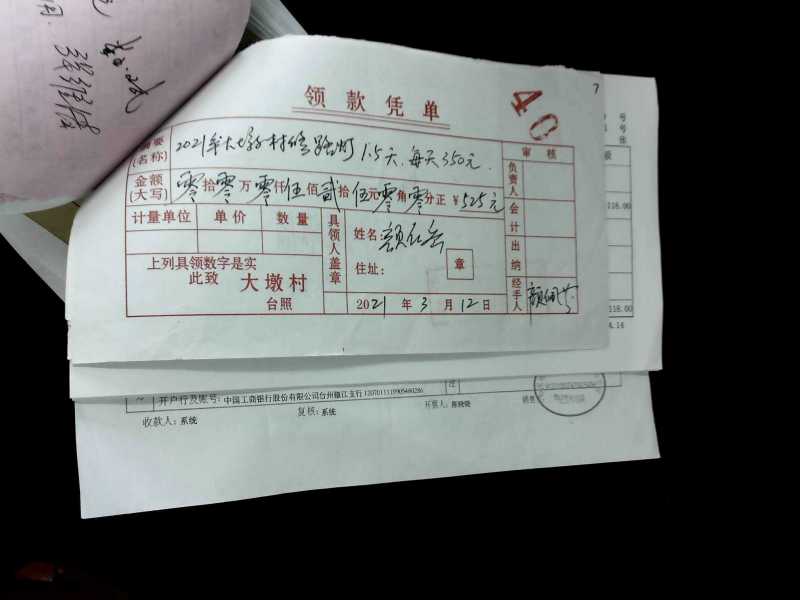 领款凭单
40
7
摘要
(名称)
2021年大墩村修路灯 1.5天，每天350元。
审核
金额
(大写)
零拾零万零仟伍佰贰拾伍元零角零分正 ¥525元
负责人
计量单位 单价 数量
具领人盖章
姓名:
住址:
章
会计
出纳
上列具领数字是实
此致 大墩村
台照
2021年3月12日
经手人
118.00
118.00
4.14
开户行及账号: 中国工商银行股份有限公司台州椒江支行
收款人: 系统
复核: 系统
开票人: